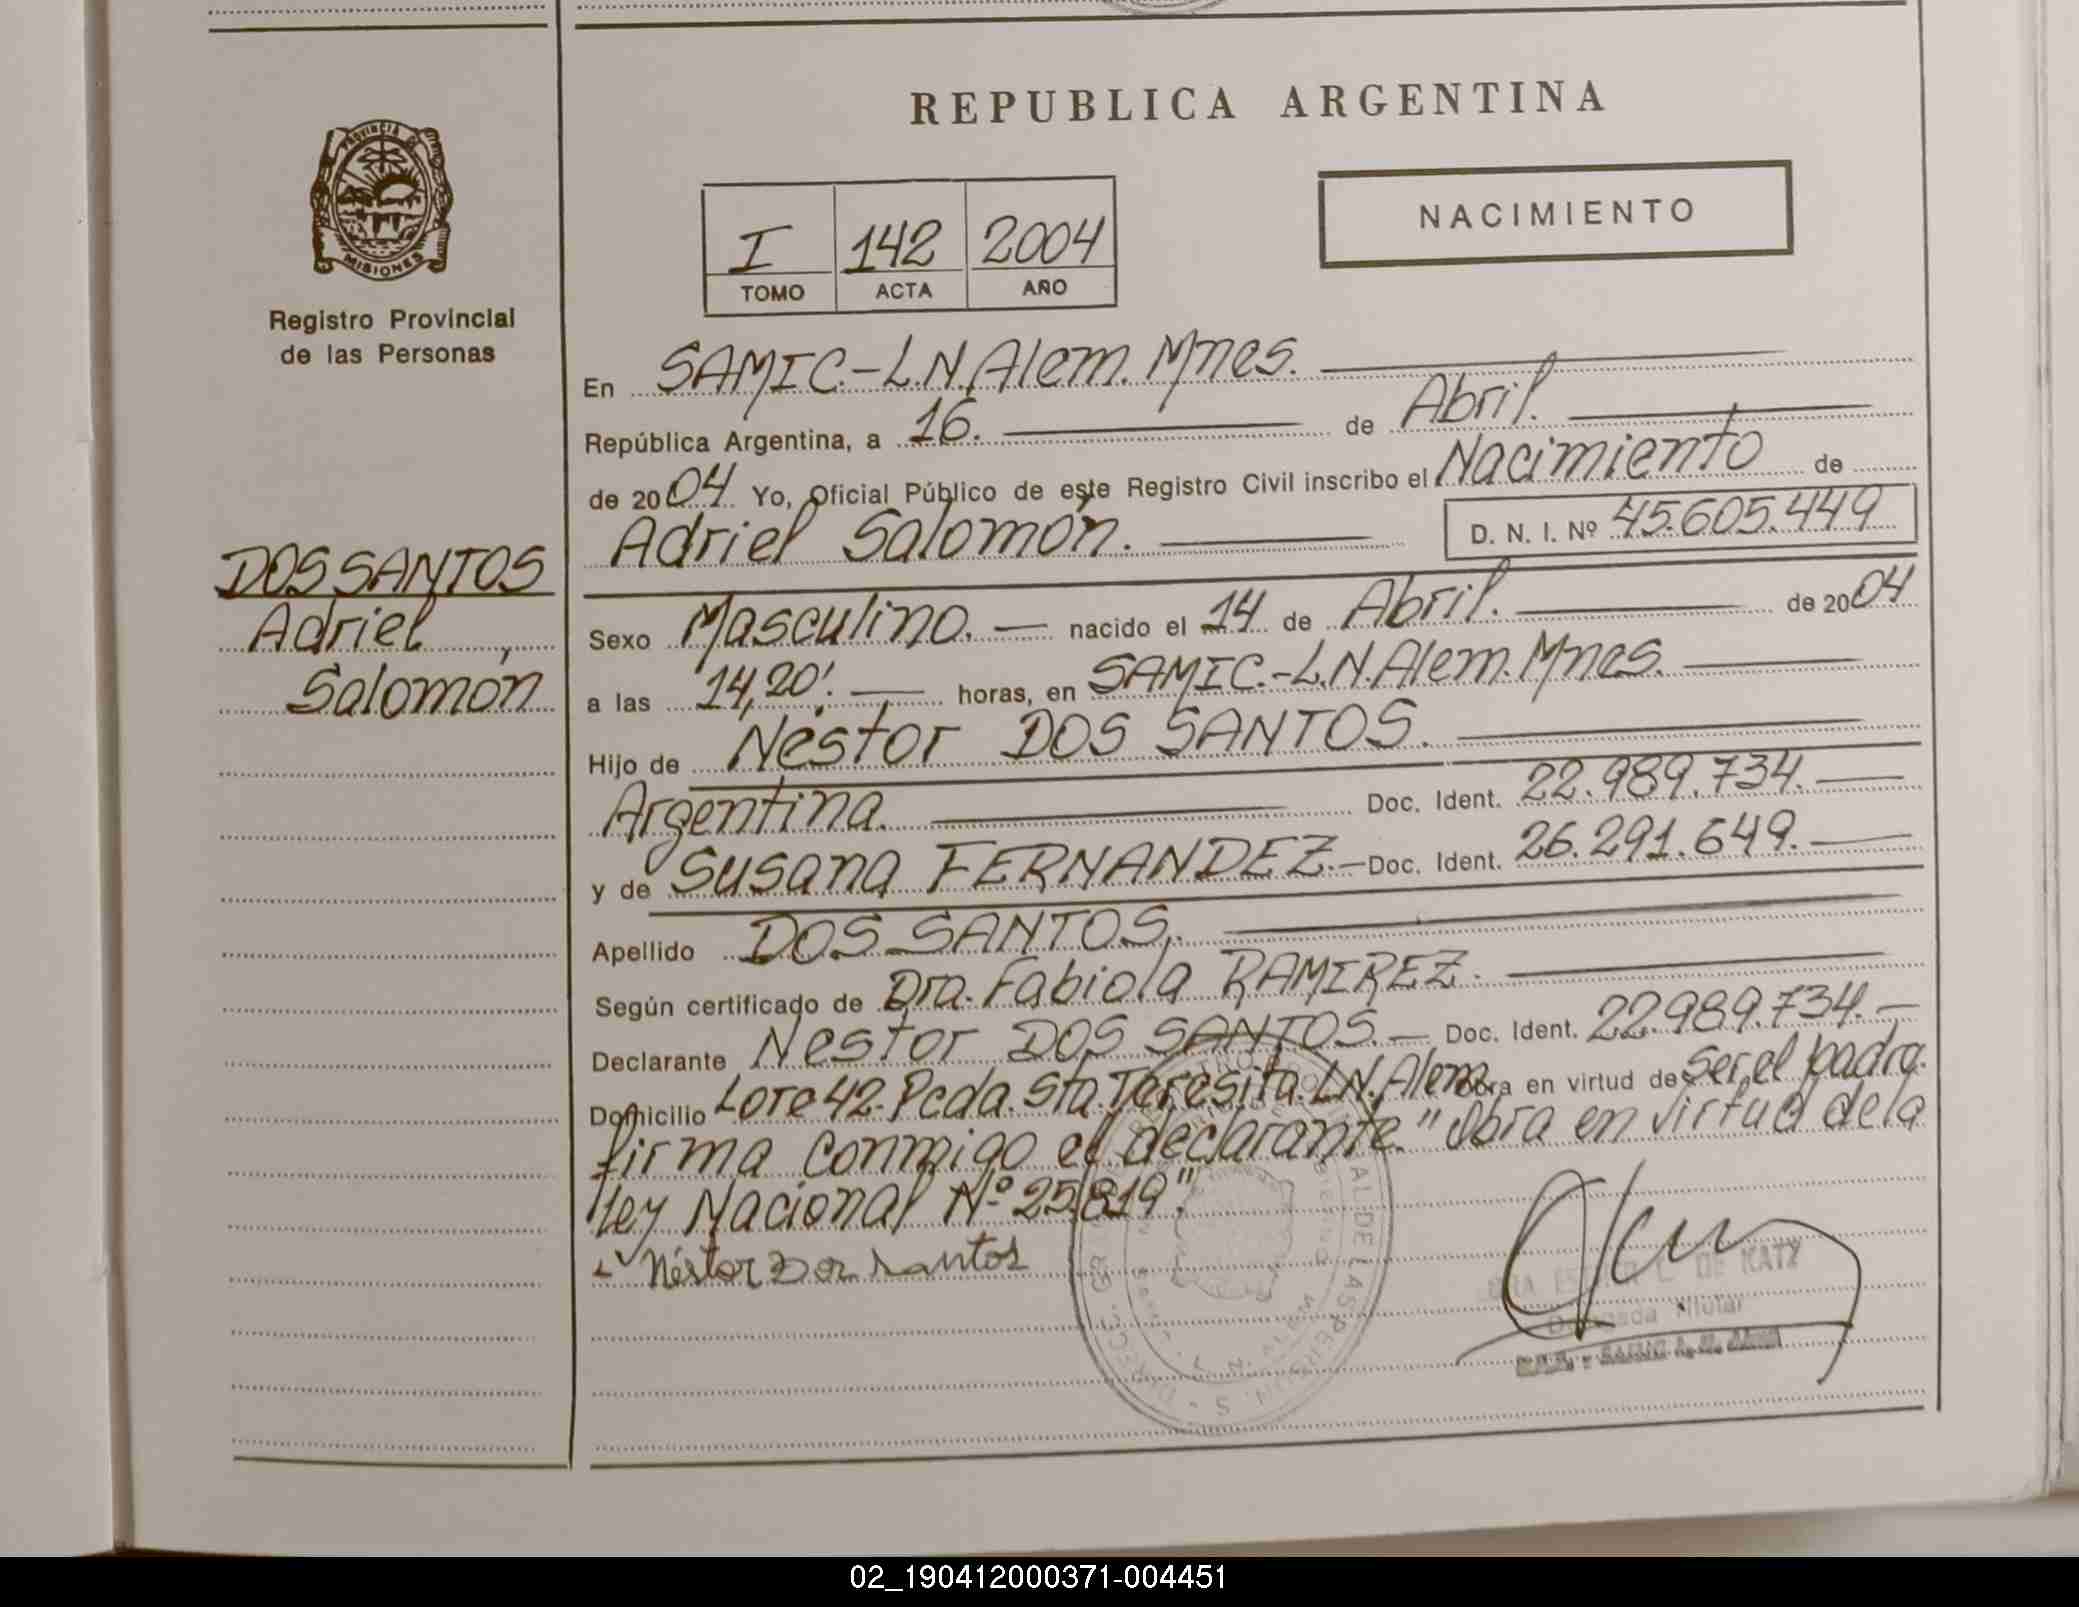 REPUBLICA ARGENTINA
PROVINCIA DE
MISIONES
Registro Provincial
de las Personas
NACIMIENTO
I 142 2004
TOMO ACTA AÑO
En SAMIC.-L.N.Alem.Mnes.
República Argentina, a 16. de Abril.
de 2004 Yo, Oficial Público de este Registro Civil inscribo el Nacimiento de
Adriel Salomón. D. N. I. Nº 45.605.449
DOS SANTOS
Adriel
Salomón
Sexo Masculino. nacido el 14 de Abril. de 2004
a las 14,20'. horas, en SAMIC.-L.N.Alem.Mnes.
Hijo de Néstor DOS SANTOS.
Argentina. Doc. Ident. 22.989.734.
y de Susana FERNANDEZ.- Doc. Ident. 26.291.649.
Apellido DOS SANTOS.
Según certificado de Dra. Fabiola RAMIREZ.
Declarante Néstor DOS SANTOS. Doc. Ident. 22.989.734.
Domicilio Lote 42.Pcda.Sta.Teresita.L.N.Alem. obra en virtud de Ser el padre.
firma conmigo el declarante."Obra en virtud de la
Ley Nacional Nº 25.819."
Néstor Dos Santos
DE KATZ
Titular
02_190412000371-004451